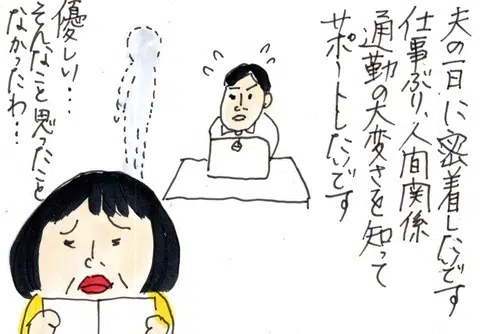 夫の一日に密着したいです
仕事ぶり、人間関係
通勤の大変さを知って
サポートしたいです
優しい・・・
そんなこと思ったこと
なかったわ・・・